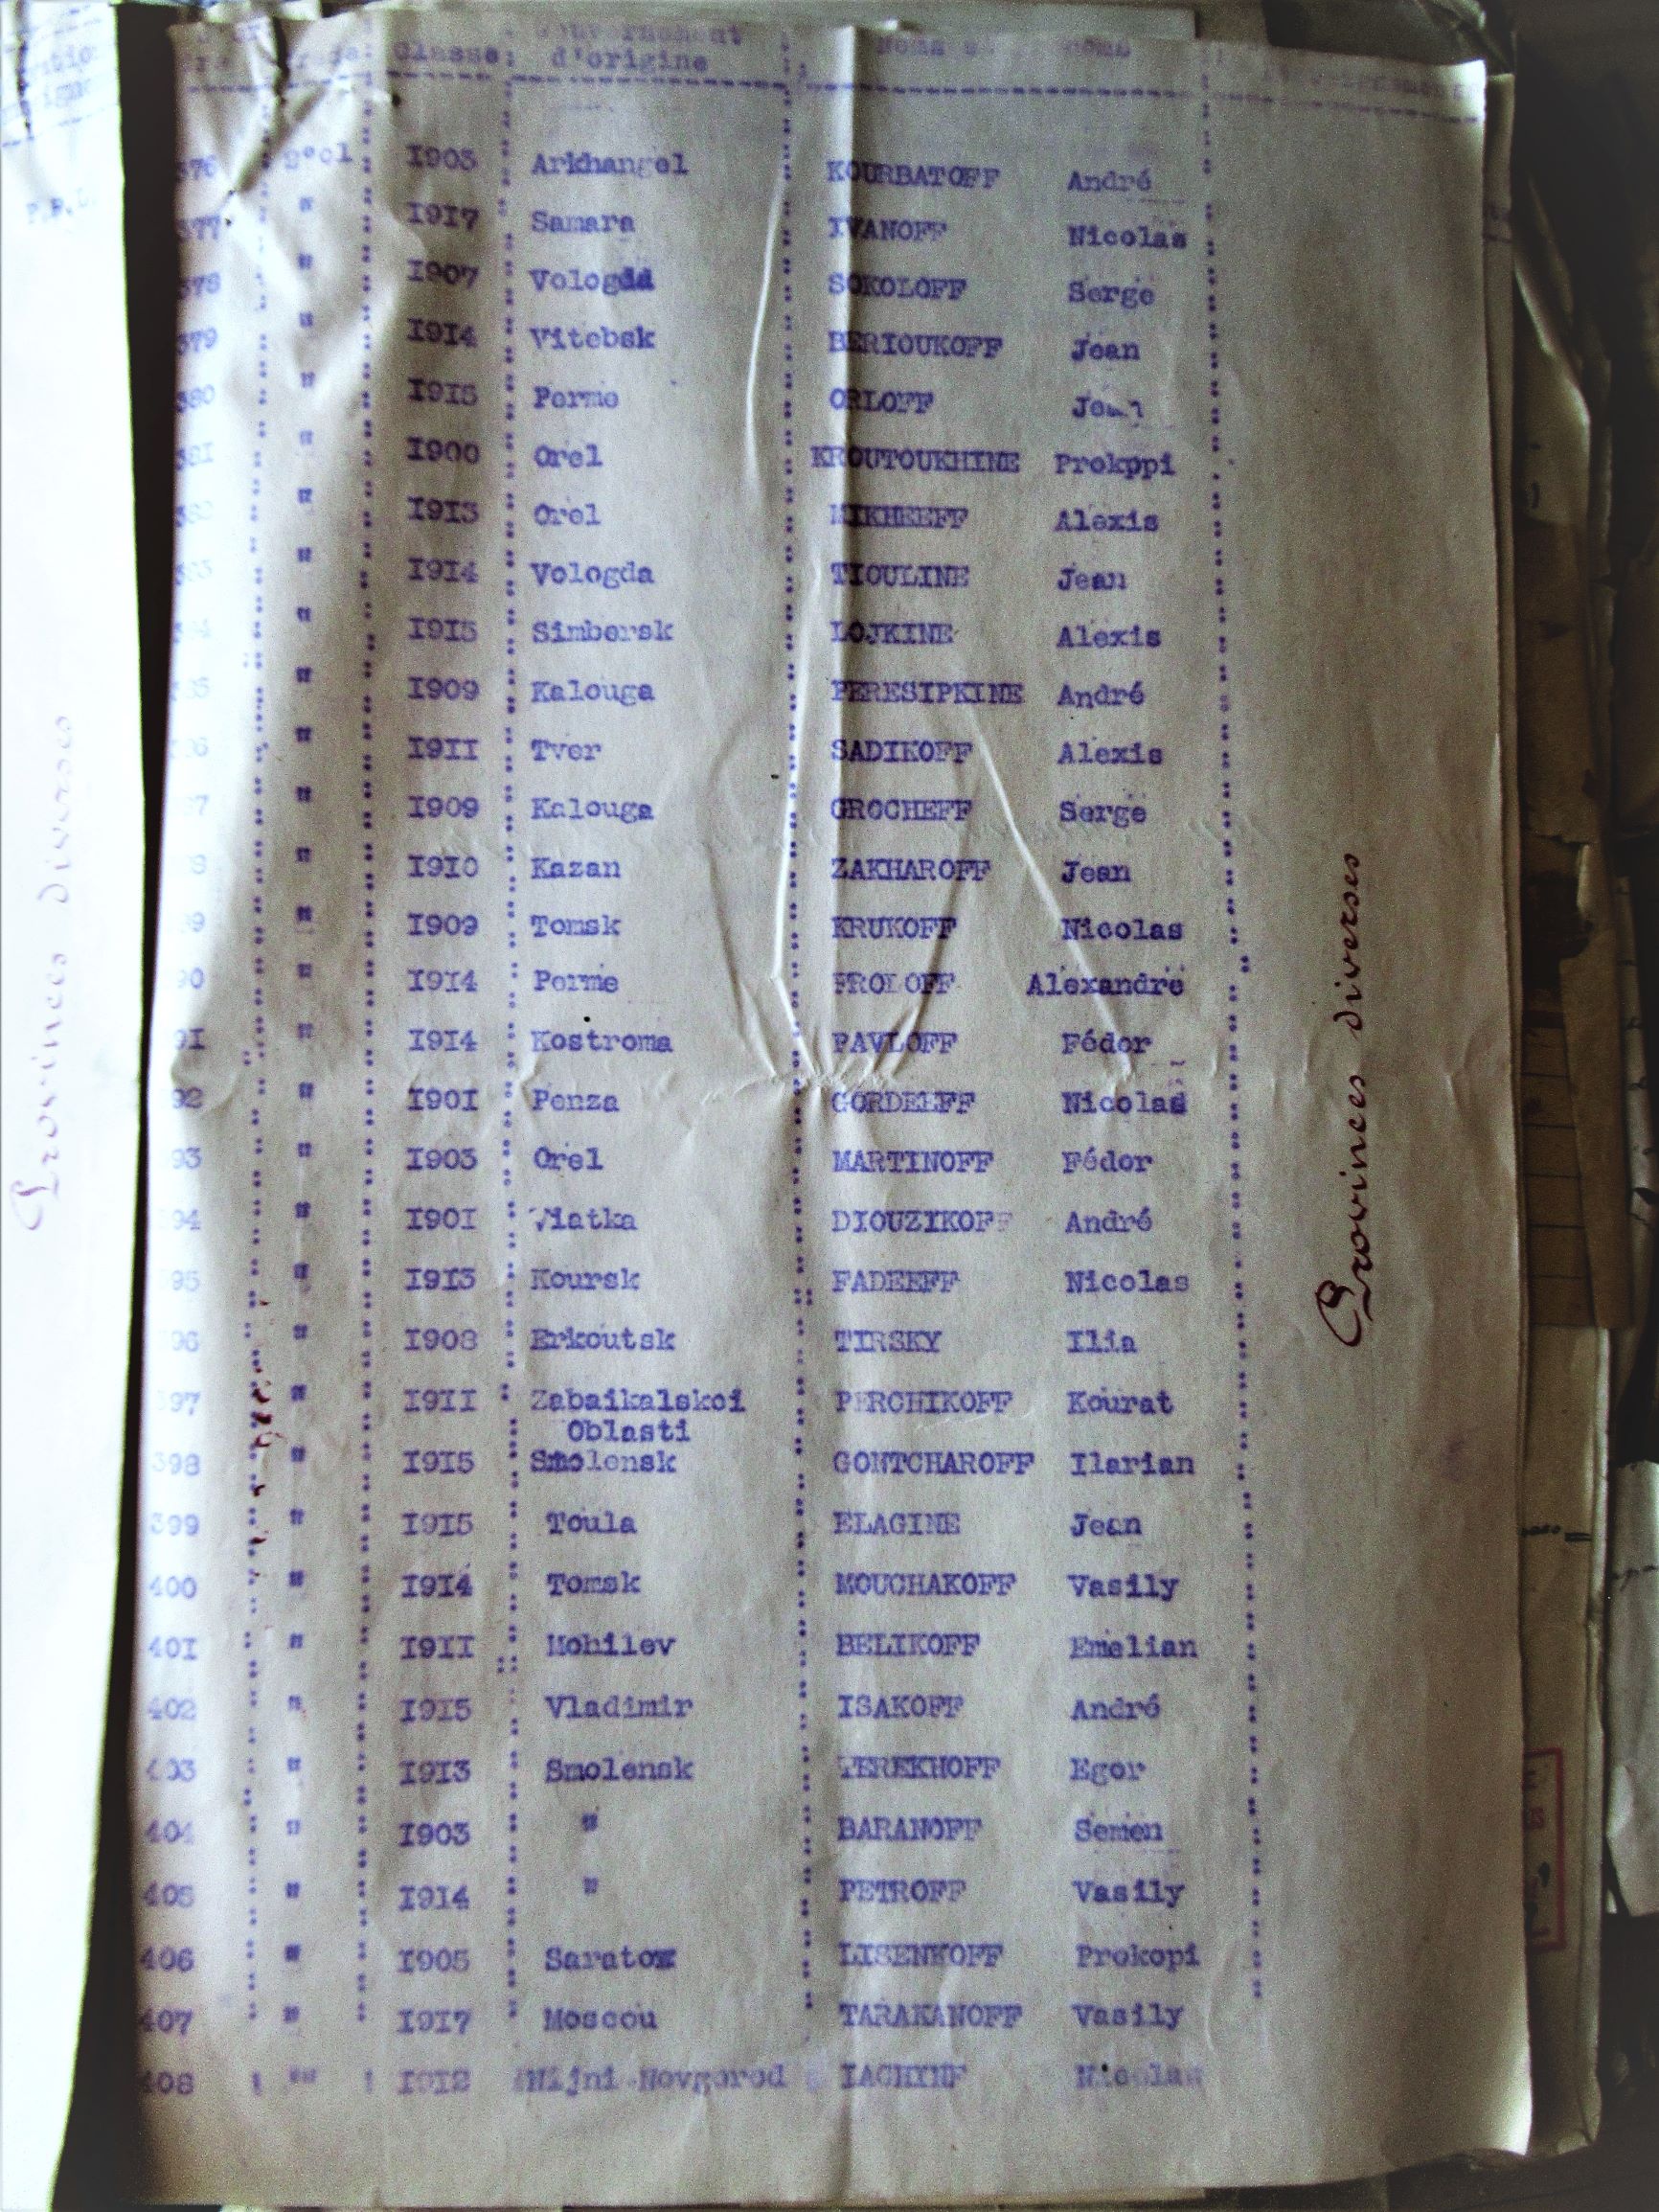 Classe: Gouvernement
d'origine
376 2°cl I903 Arkhangel KOURBATOFF André
377 " I9I7 Samara IVANOFF Nicolas
378 " I907 Vologda SOKOLOFF Serge
379 " I9I4 Vitebsk BERIOUKOFF Jean
380 " I9I5 Perme ORLOFF Jean
38I " I900 Orel KROUTOUKHINE Prokppi
382 " I9I3 Orel MIKHEEFF Alexis
383 " I9I4 Vologda TIOULINE Jean
384 " I9I5 Simbersk LOJKINE Alexis
385 " I909 Kalouga PERESIPKINE André
386 " I9II Tver SADIKOFF Alexis
87 " I909 Kalouga GROCHEFF Serge
8 " I9I0 Kazan ZAKHAROFF Jean
89 " I909 Tomsk KRUKOFF Nicolas
90 " I9I4 Perme FROLOFF Alexandre
9I " I9I4 Kostroma PAVLOFF Fédor
92 " I90I Penza GORDEEFF Nicolas
93 " I903 Orel MARTINOFF Fédor
394 " I90I Viatka DIOUZIKOFF André
395 " I9I3 Koursk FADEEFF Nicolas
396 " I908 Erkoutsk TIRSKY Ilia
397 " I9II Zabaikalskoi PERCHIKOFF Kourat
Oblasti
398 " I9I5 Smolensk GONTCHAROFF Ilarian
399 " I9I5 Toula ELAGINE Jean
400 " I9I4 Tomsk MOUCHAKOFF Vasily
40I " I9II Mohilev BELIKOFF Emelian
402 " I9I5 Vladimir ISAKOFF André
403 " I9I3 Smolensk TEREKHOFF Egor
404 " I903 " BARANOFF Semen
405 " I9I4 " PETROFF Vasily
406 " I905 Saratow LISENKOFF Prokopi
407 " I9I7 Moscou TARAKANOFF Vasily
408 " I9I2 Nijni Novgorod IACHINE Nicolas
Provinces diverses
Provinces diverses